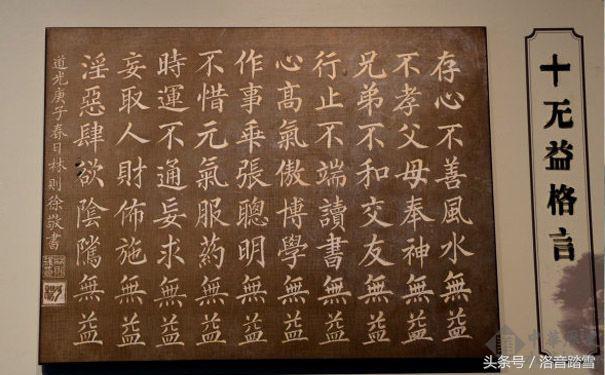 十无益格言
存心不善風水無益
不孝父母奉神無益
兄弟不和交友無益
行止不端讀書無益
心髙氣傲博學無益
作事乖張聰明無益
不惜元氣服藥無益
時運不通妄求無益
妄取人財佈施無益
淫惡肆欲陰騭無益
道光庚子春日林則徐敬書
头条号／洛音踏雪